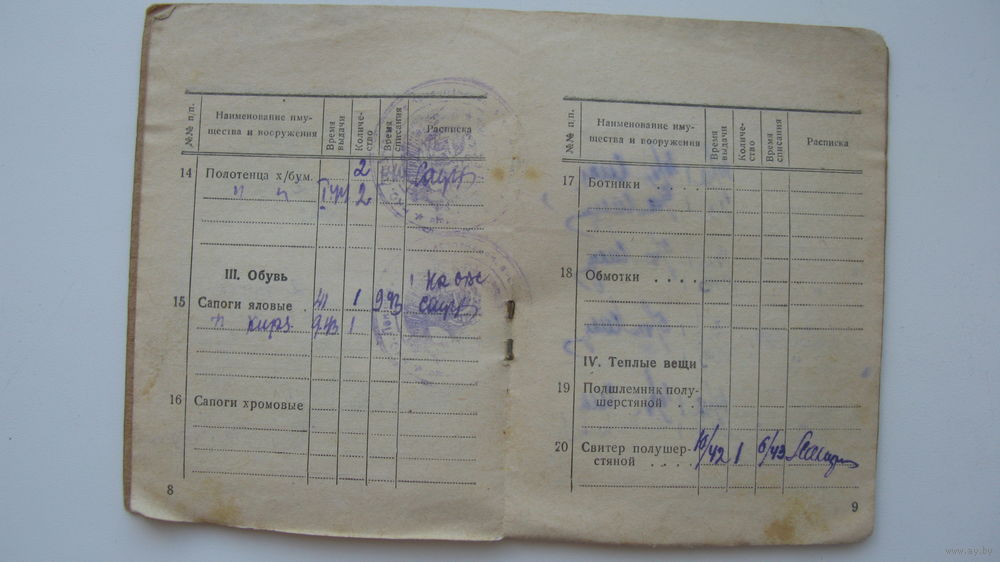 №№ п.п.
Наименование иму-
щества и вооружения
Время
выдачи
Количе-
ство
Время
списания
Расписка
14 Полотенца х/бум. 2
" " 2
III. Обувь
15 Сапоги яловые 41 1 9 43
" кирз. 9.43 1
16 Сапоги хромовые
8
№№ п.п.
Наименование иму-
щества и вооружения
Время
выдачи
Количе-
ство
Время
списания
Расписка
17 Ботинки . . . .
18 Обмотки . . . .
IV. Теплые вещи
19 Подшлемник полу-
шерстяной . .
20 Свитер полушер- 10/42 1 6/43
стяной . . . .
9
www.ay.by